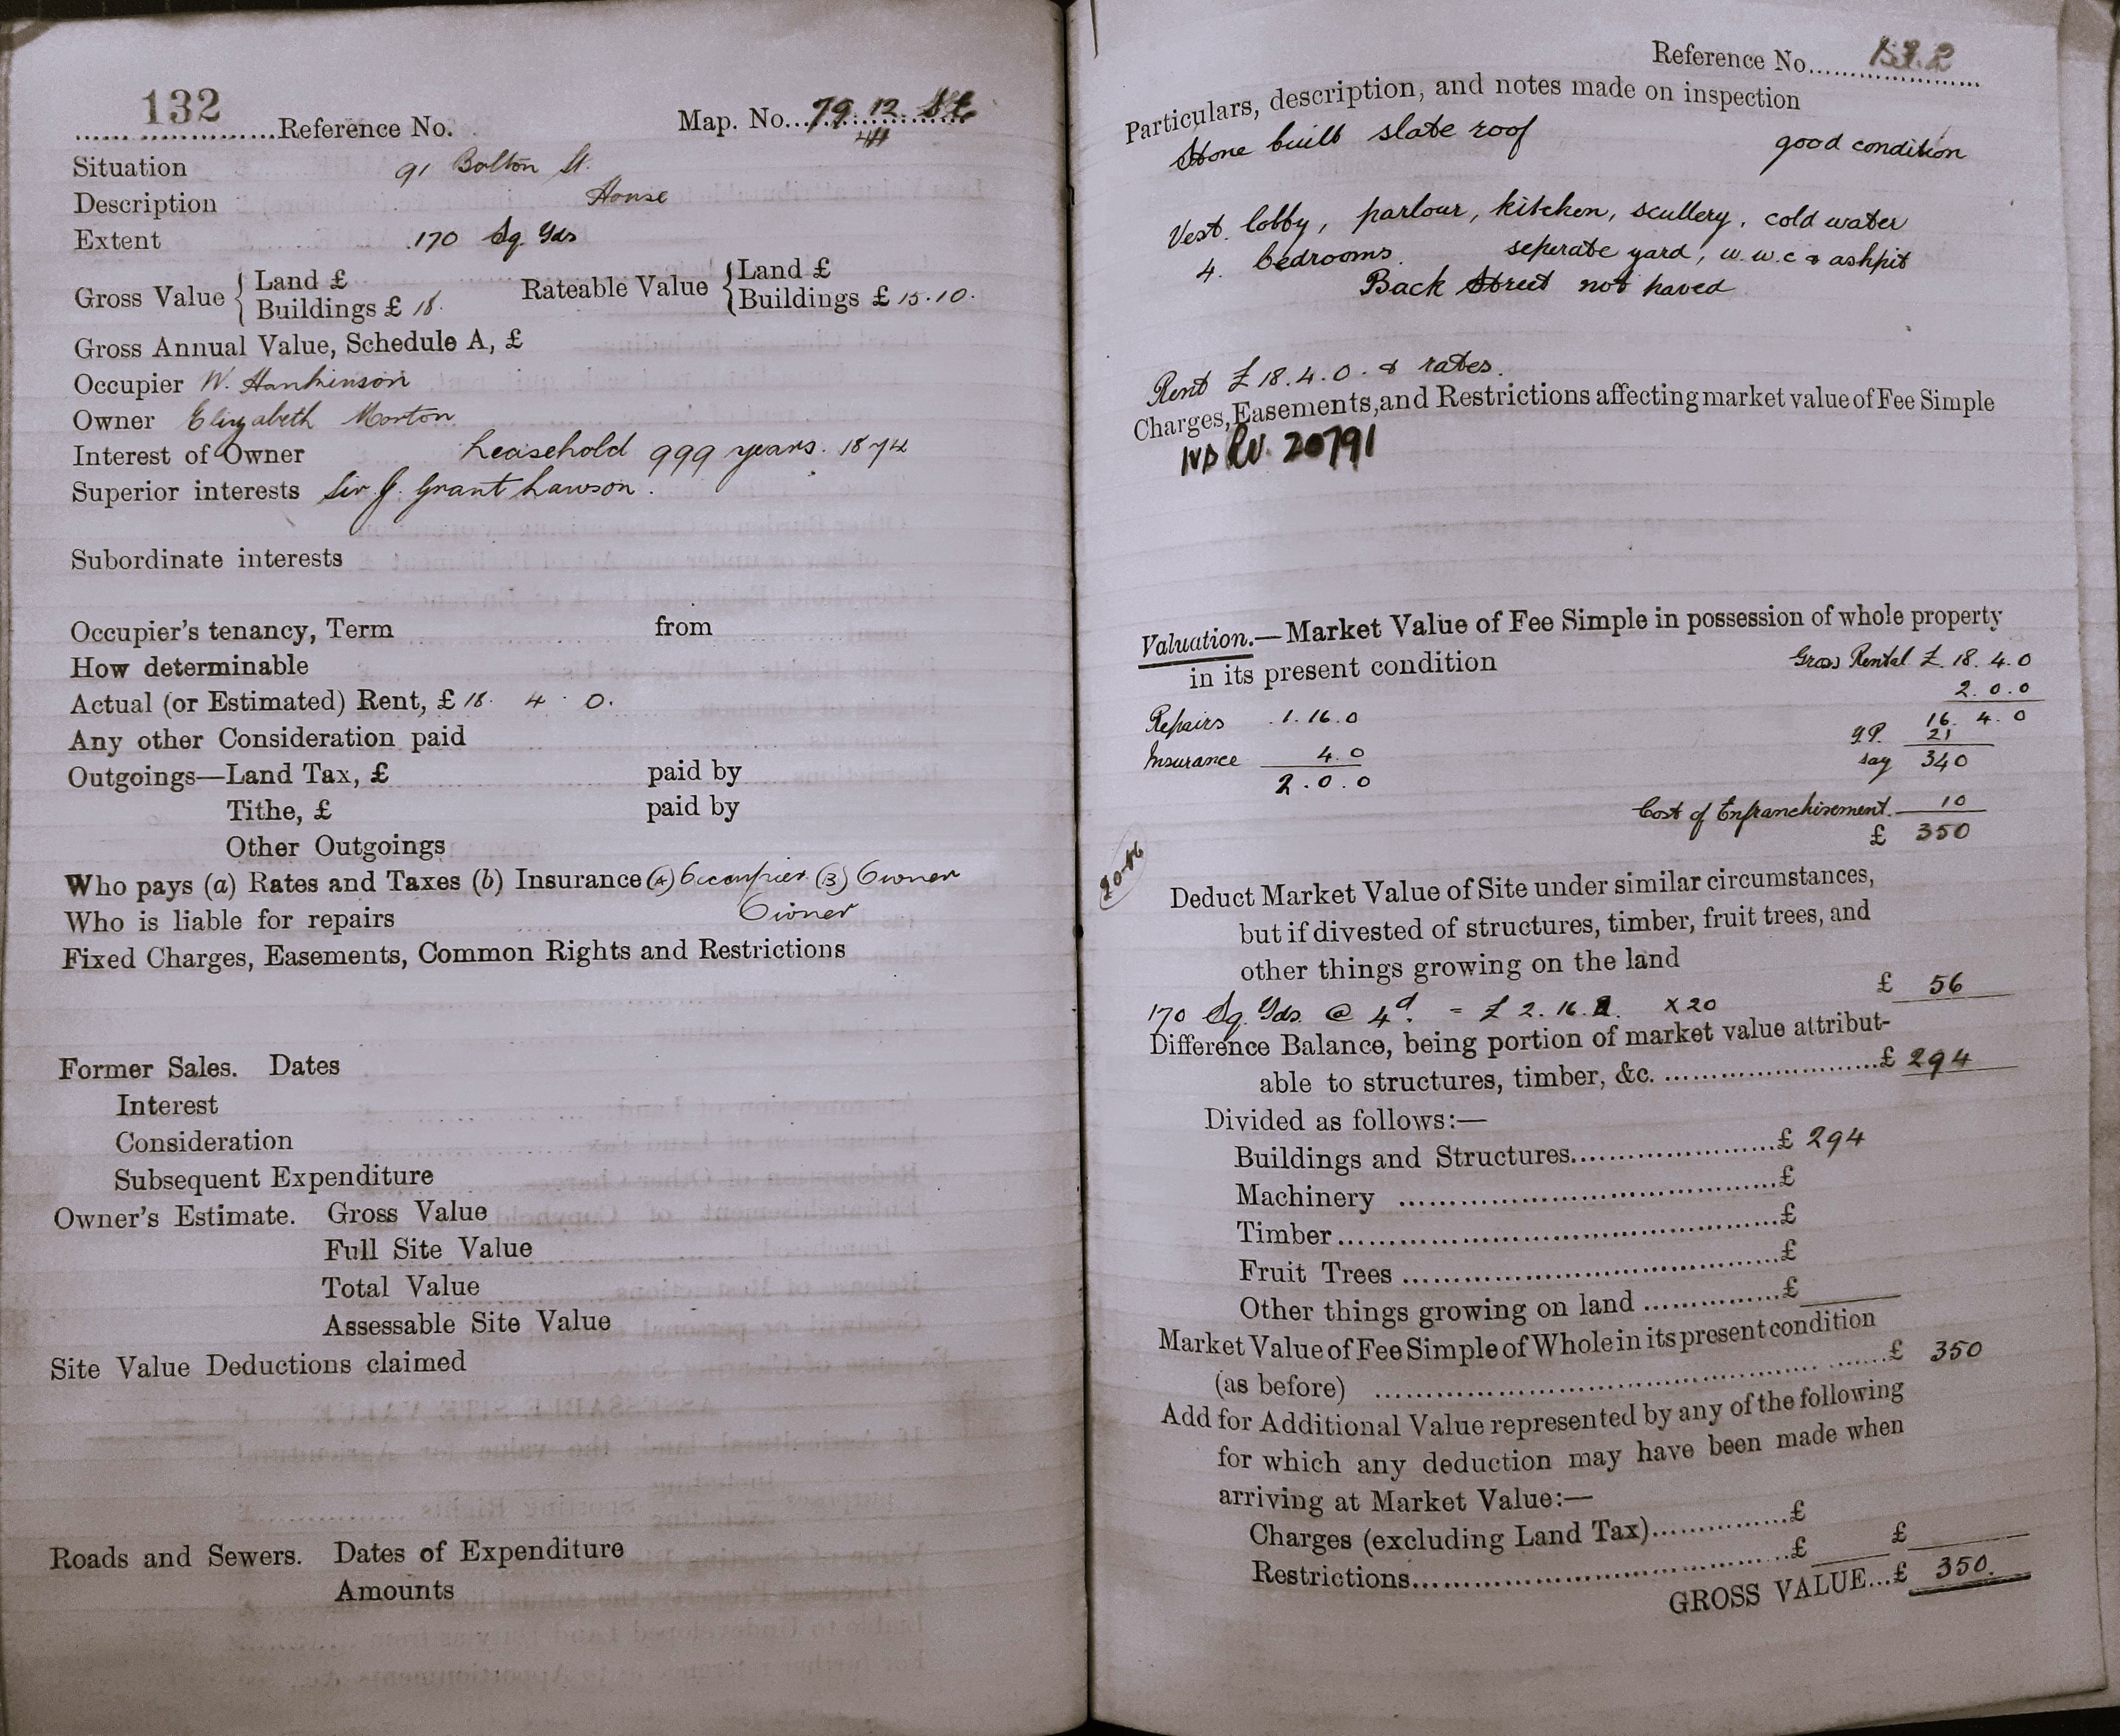 132
Reference No.
Map. No. 79.12.
Situation 91 Bolton St.
Description House
Extent 170 Sq. Yds
Gross Value { Land £ Rateable Value { Land £
Buildings £ 18. Buildings £ 15.10.
Gross Annual Value, Schedule A, £
Occupier W. Hankinson
Owner Elizabeth Morton
Interest of Owner Leasehold 999 years. 1874
Superior interests Sir J. Grant Lawson.
Subordinate interests
Occupier's tenancy, Term from
How determinable
Actual (or Estimated) Rent, £ 18. 4. 0.
Any other Consideration paid
Outgoings—Land Tax, £ paid by
Tithe, £ paid by
Other Outgoings
Who pays (a) Rates and Taxes (b) Insurance (A) Occupier (B) Owner
Who is liable for repairs Owner
Fixed Charges, Easements, Common Rights and Restrictions
Former Sales. Dates
Interest
Consideration
Subsequent Expenditure
Owner's Estimate. Gross Value
Full Site Value
Total Value
Assessable Site Value
Site Value Deductions claimed
Roads and Sewers. Dates of Expenditure
Amounts
Reference No. 132
Particulars, description, and notes made on inspection
Stone built slate roof good condition
Vest. lobby, parlour, kitchen, scullery, cold water
4. bedrooms. seperate yard, w.w.c & ashpit
Back Street not paved
Rent £18.4.0. & rates.
Charges, Easements, and Restrictions affecting market value of Fee Simple
20791
Valuation.—Market Value of Fee Simple in possession of whole property
in its present condition Gross Rental £. 18. 4. 0
2. 0. 0
Repairs 1. 16. 0 16. 4. 0
Y.P. 21
Insurance 4. 0 say 340
2. 0. 0
Cost of Enfranchisement. 10
£ 350
Deduct Market Value of Site under similar circumstances,
but if divested of structures, timber, fruit trees, and
other things growing on the land
£ 56
170 Sq. Yds. @ 4d. = £ 2. 16. X 20
Difference Balance, being portion of market value attribut-
able to structures, timber, &c. £ 294
Divided as follows:—
Buildings and Structures £ 294
Machinery £
Timber £
Fruit Trees £
Other things growing on land £
Market Value of Fee Simple of Whole in its present condition
(as before) £ 350
Add for Additional Value represented by any of the following
for which any deduction may have been made when
arriving at Market Value:—
Charges (excluding Land Tax) £
Restrictions £ £
GROSS VALUE...£ 350.